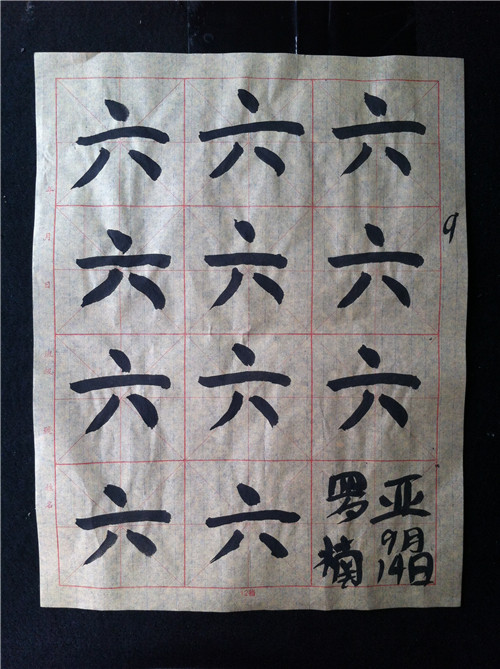 六 六 六
六 六 六 9
六 六 六
六 六
罗亚楠
9月14日